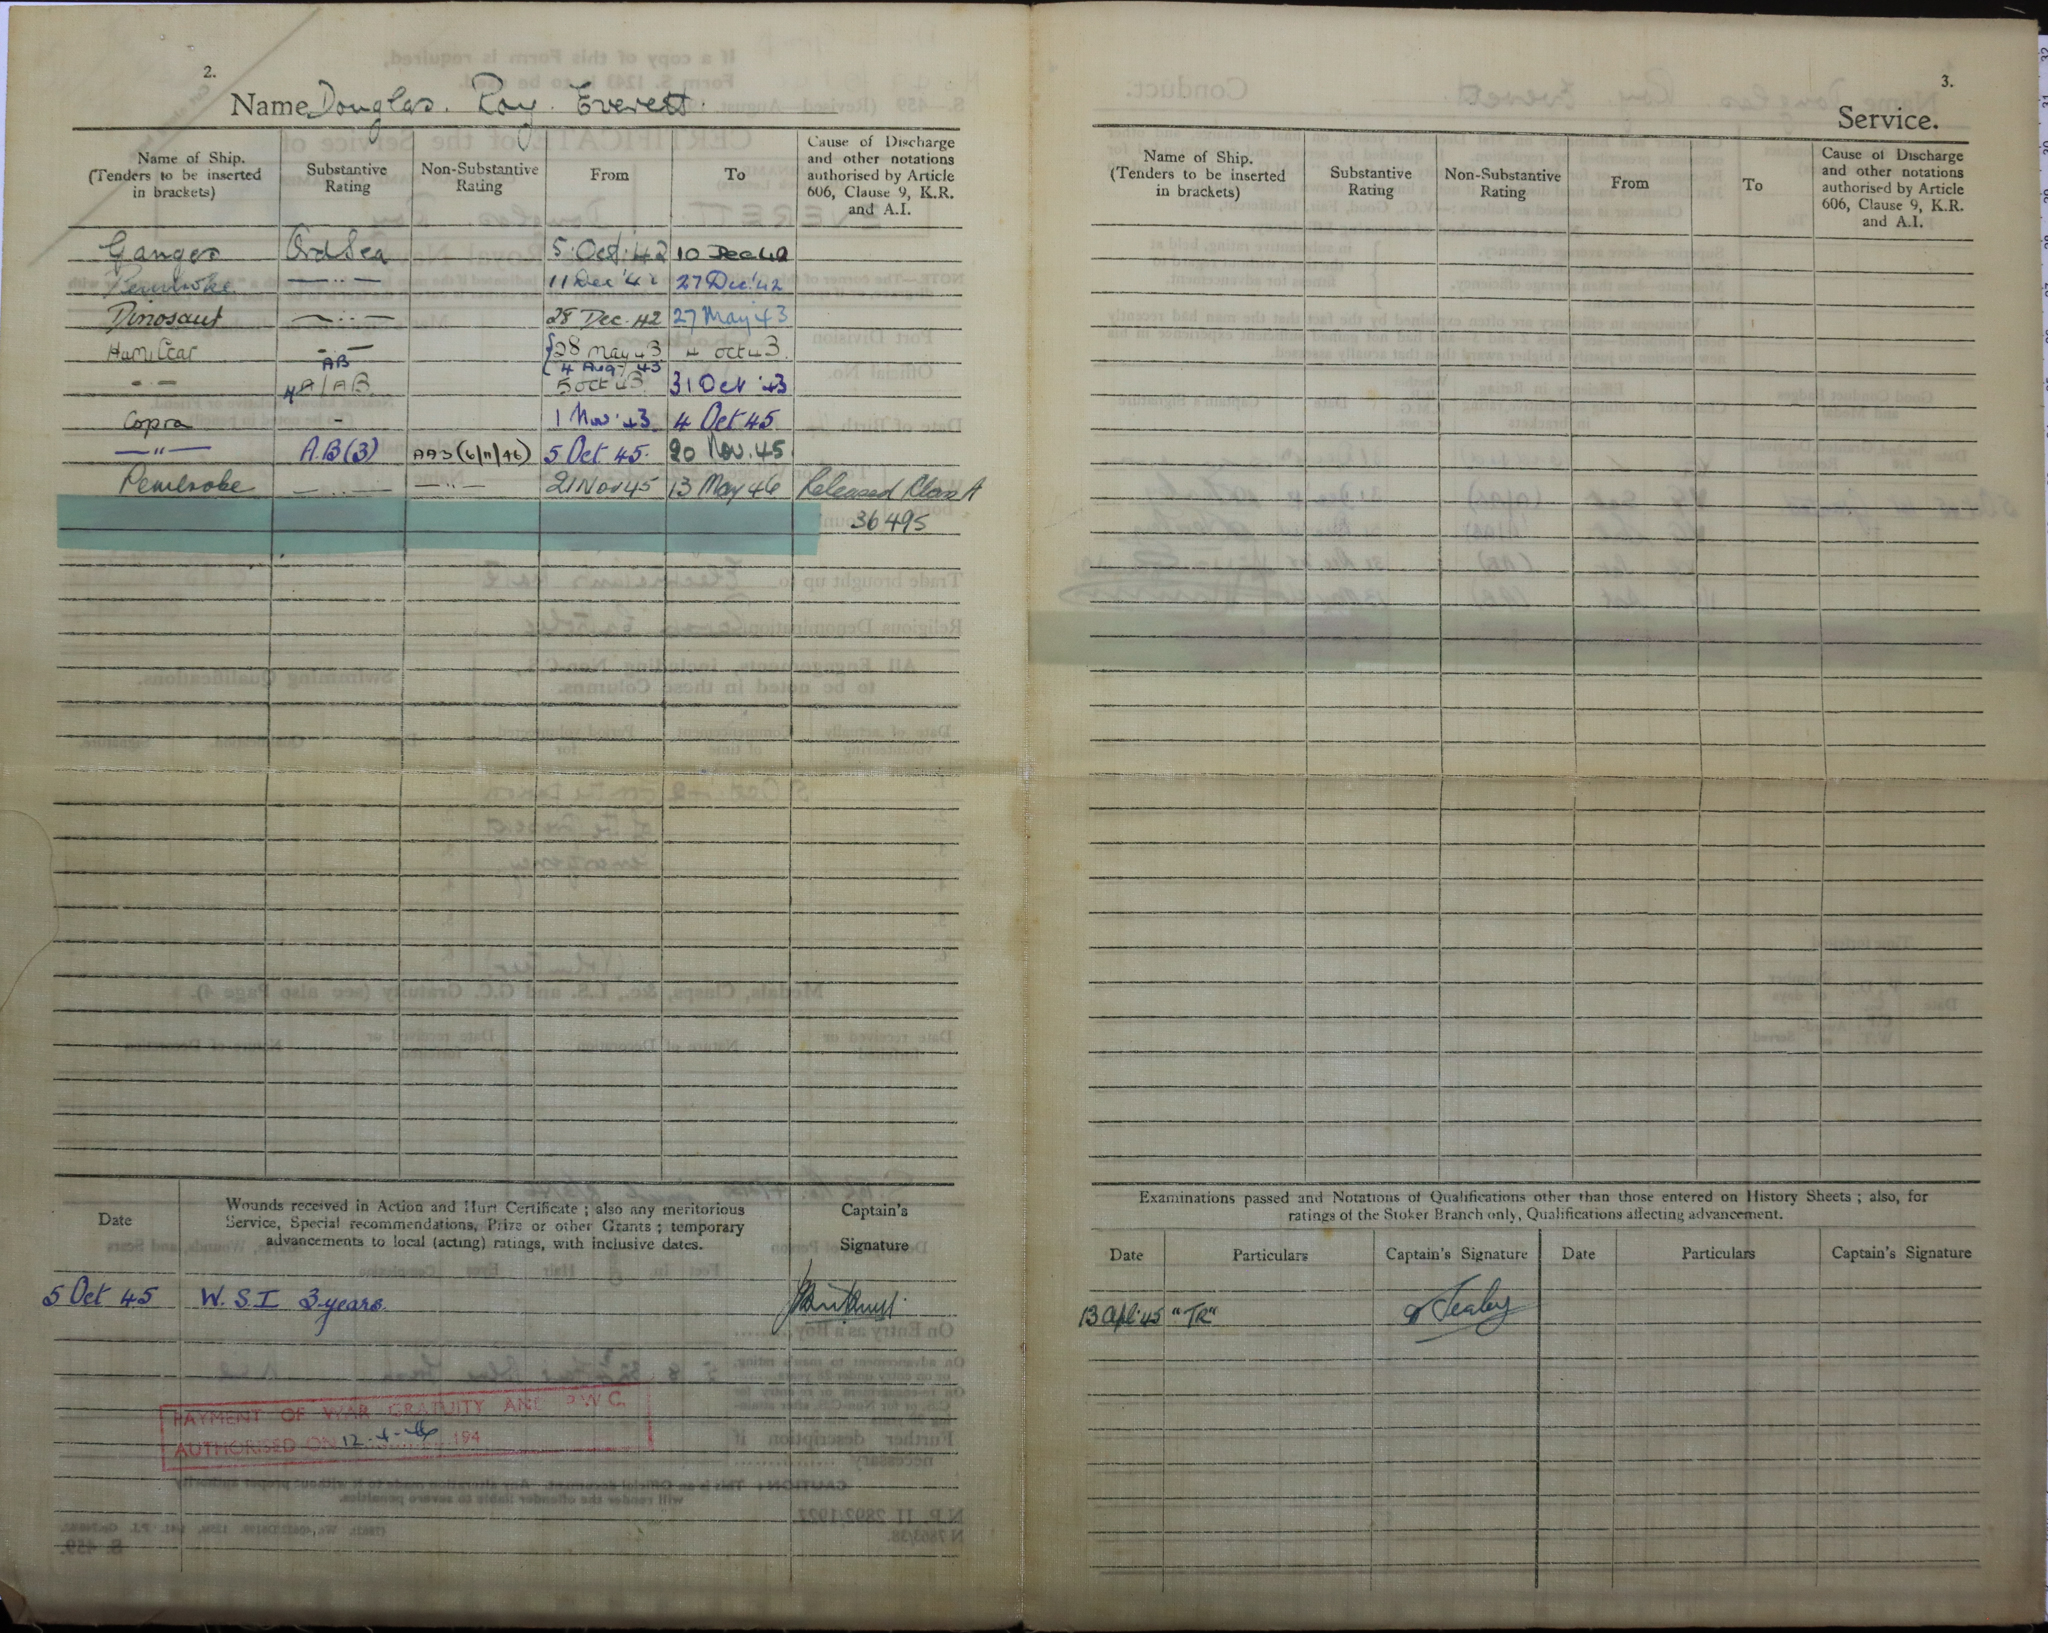 2.
Name Douglas. Roy. Everett.
Name of Ship. (Tenders to be inserted in brackets) Substantive Rating Non-Substantive Rating From To Cause of Discharge and other notations authorised by Article 606, Clause 9, K.R. and A.I.
Ganges Ord Sea 5. Oct. 42 10 Dec 42
Pembroke — .. — 11 Dec '42 27 Dec. '42
Dinosaur — .. — 28 Dec. 42 27 May 43
Hamilcar — .. — {28 May 43 4 Oct 43.
AB {4 Aug 43
— .. — A/AB. 5 Oct 43. 31 Oct '43
Copra — 1 Nov '43. 4 Oct 45
— " — A.B (3) AA3 (6/11/46) 5 Oct 45. 20 Nov. 45
Pembroke — .. — — .. — 21 Nov 45 13 May 46 Released Class A
36495
Date Wounds received in Action and Hurt Certificate ; also any meritorious Captain's
Service, Special recommendations, Prize or other Grants ; temporary
advancements to local (acting) ratings, with inclusive dates. Signature
5 Oct 45 W. S. I 3 years.
PAYMENT OF WAR GRATUITY AND P.W.C.
AUTHORISED ON 12 - 4 - 46 194
3.
Service.
Name of Ship. (Tenders to be inserted in brackets) Substantive Rating Non-Substantive Rating From To Cause of Discharge and other notations authorised by Article 606, Clause 9, K.R. and A.I.
Examinations passed and Notations of Qualifications other than those entered on History Sheets ; also, for
ratings of the Stoker Branch only, Qualifications affecting advancement.
Date Particulars Captain's Signature Date Particulars Captain's Signature
13 Apl 45 "TR"